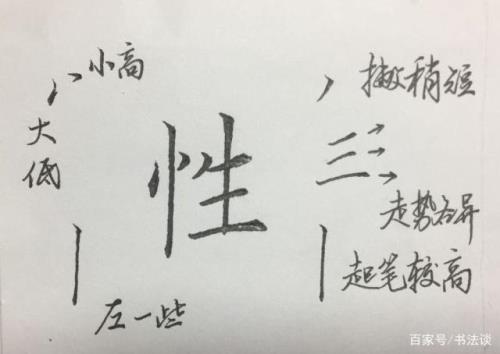 小高
大
低
性
左一些
撇稍短
走势各异
起笔较高
百家号/书法谈